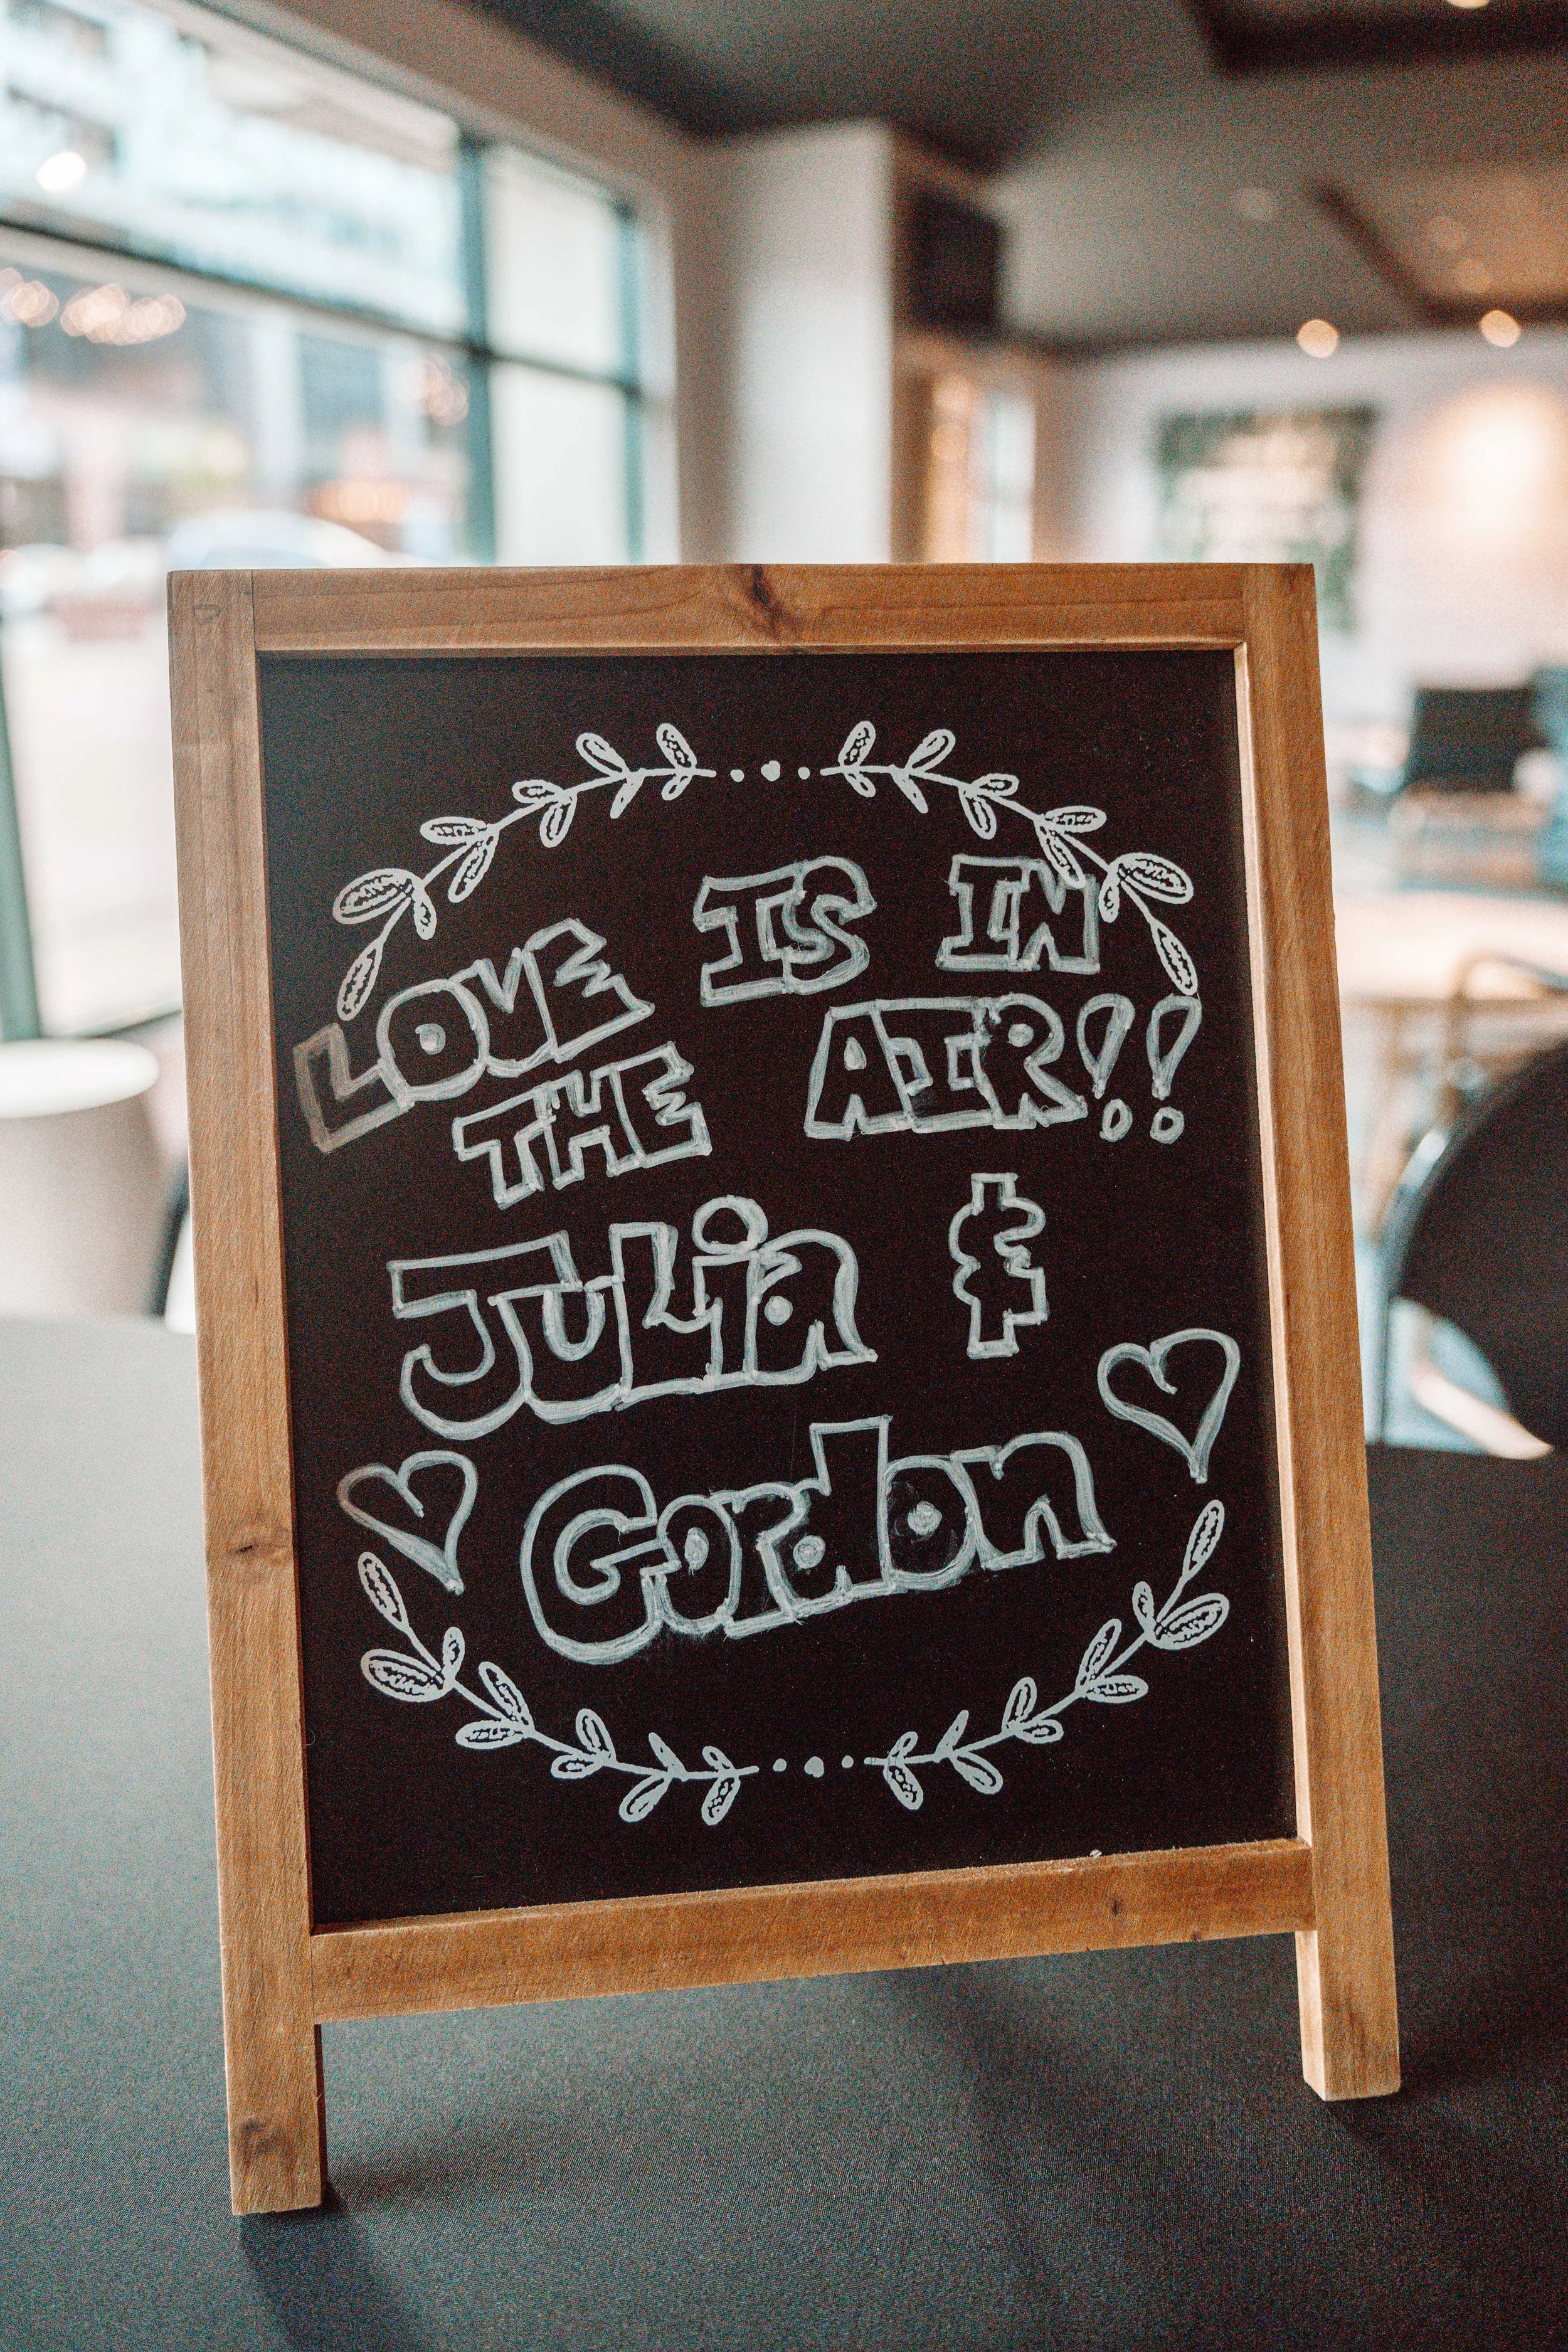 LOVE IS IN
THE AIR!!
JuLia &
Gordon